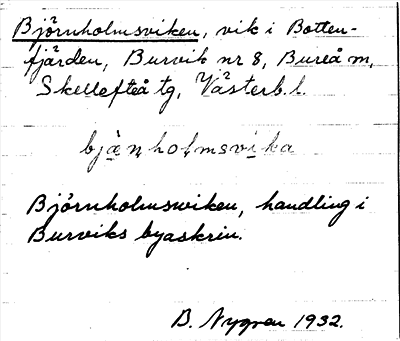 Björnholmsviken, vik i Botten-
fjärden, Burvik nr 8, Bureå m,
Skellefteå tg, Västerb.l.
bjänholmsvika
Björnholmswiken, handling i
Burviks byaskrin.
B. Nygren 1932.